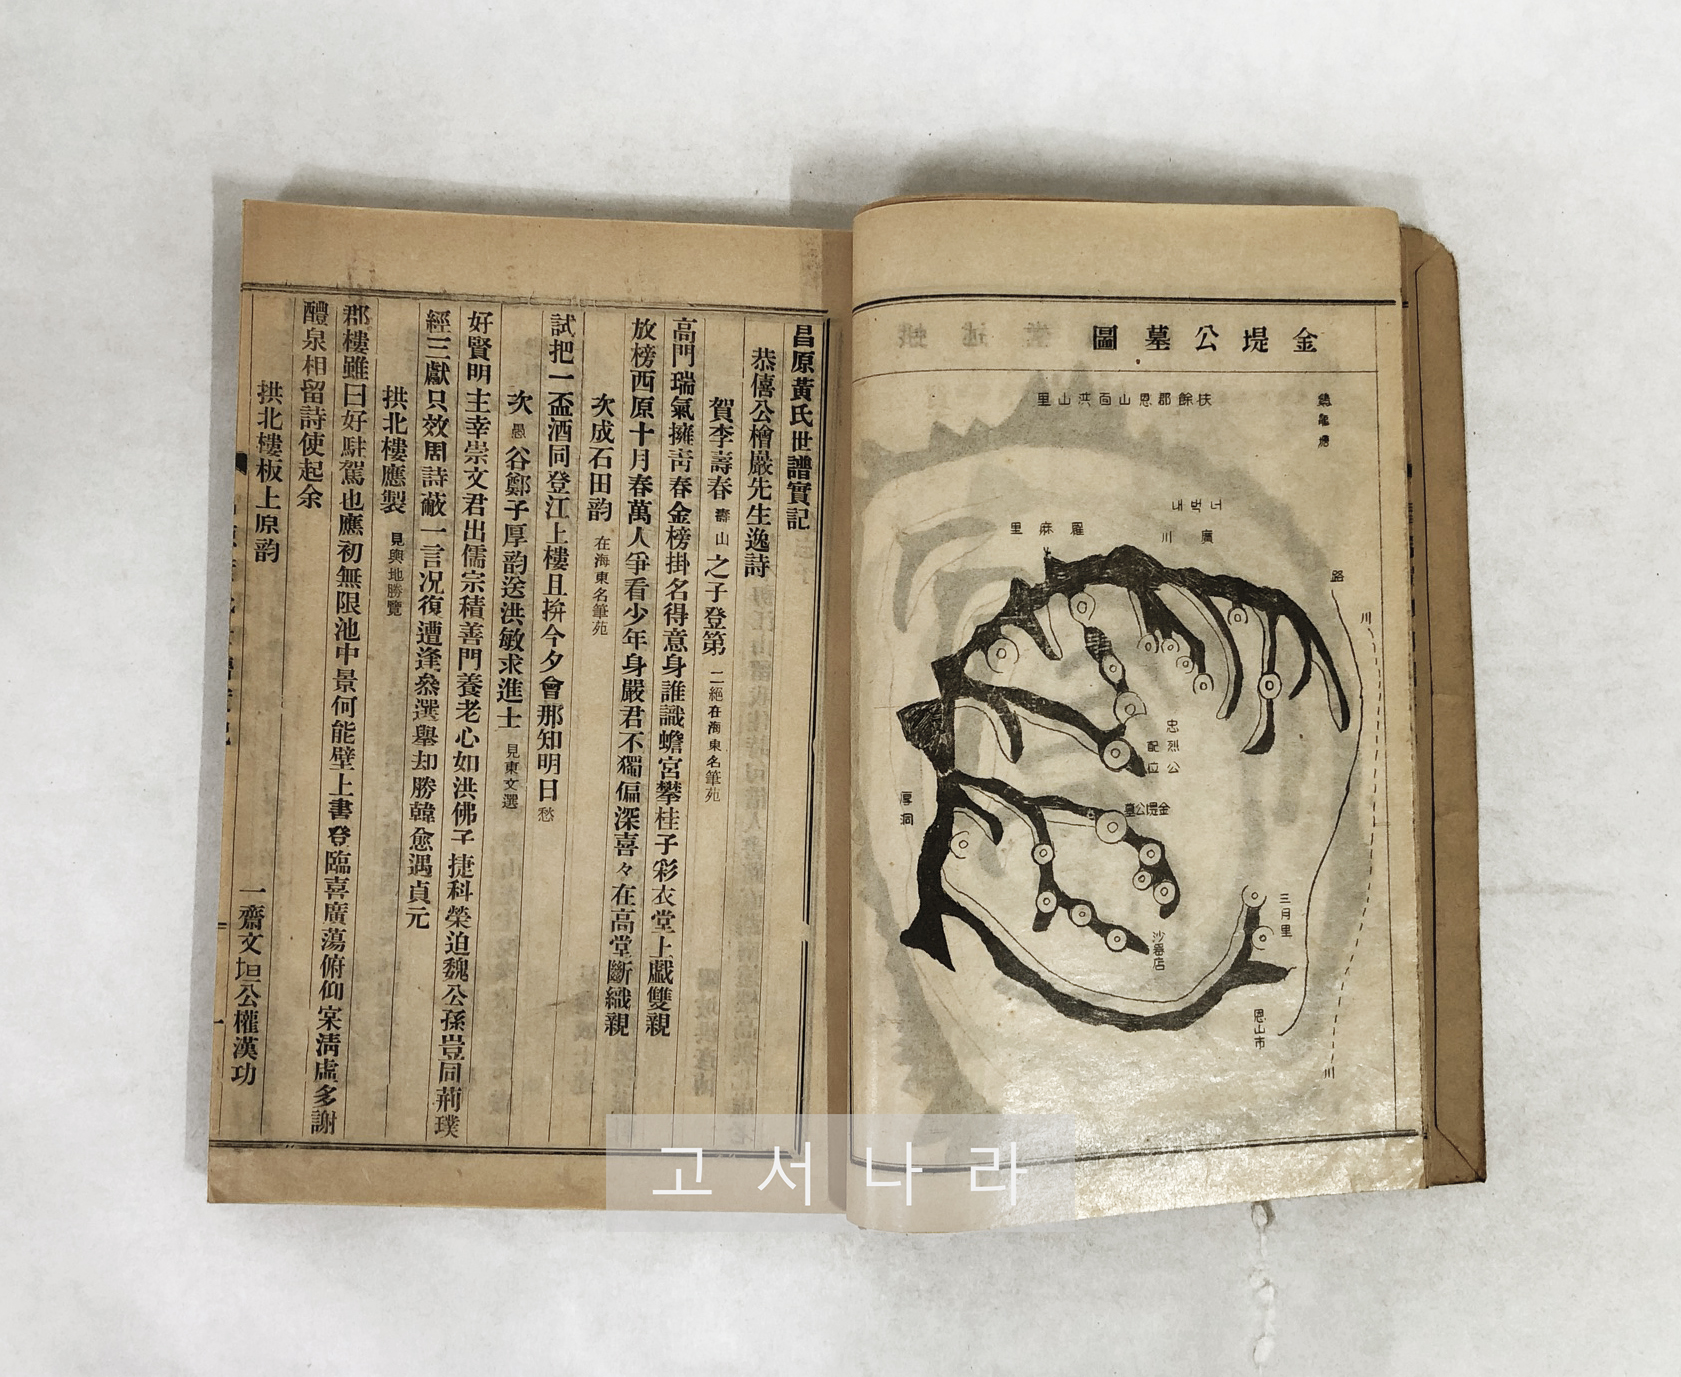 金堤公墓圖
扶餘郡恩山面洪山里
너덕내
廣川
羅麻里
路
川
忠烈公
配位
金堤公墓
厚洞
三月里
沙器店
恩山市
川
昌原黃氏世譜實記
恭僖公檜巖先生逸詩
賀李壽春 壽山 之子登第 二絕在海東名筆苑
高門瑞氣擁靑春金榜掛名得意身誰識蟾宮攀桂子彩衣堂上戱雙親
放榜西原十月春萬人爭看少年身嚴君不獨偏深喜々在高堂斷織親
次成石田韵 在海東名筆苑
試把一盃酒同登江上樓且拚今夕會那知明日愁
次 愚 谷鄭子厚韵送洪敏求進士 見東文選
好賢明主幸崇文君出儒宗積善門養老心如洪佛子捷科榮迫魏公孫豈同荊璞
經三獻只效周詩蔽一言况復遭逢叅選擧却勝韓愈遇貞元
拱北樓應製 見輿地勝覽
郡樓雖曰好駐駕也應初無限池中景何能壁上書登臨喜廣蕩俯仰宲淸虛多謝
醴泉相留詩使起余
拱北樓板上原韵
一齋文坦公權漢功
고서나라